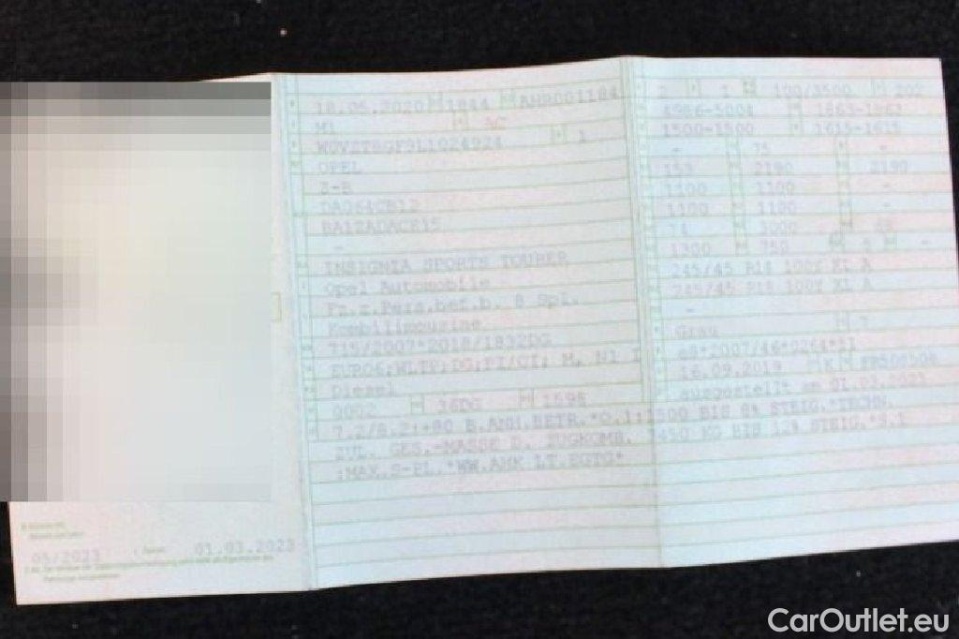 18.05.2020 1844 AHR001184
M1 AC
W0VZT8GF9L1024924 1
OPEL
Z-B
BA1ZADACE15
-
INSIGNIA SPORTS TOURER
Opel Automobile
Fz.z.Pers.bef.b. 8 Spl.
Kombilimousine
715/2007*2018/1832DG
EURO6;WLTP;DG;PI/CI; M, N1 I
Diesel
0002 36DG 1598
2 1 100/3500 202
4986-5004 1863-1863
1500-1500 1615-1615
- 75 -
153 2190 2190
1100 1100 -
1100 1100 -
74 3000
1300 750 5 -
245/45 R18 100Y XL A
245/45 R18 100Y XL A
-
Grau 7
e8*2007/46*0264*11
16.09.2019 K
ausgestellt am 01.03.2023
7.2/8.2:+80 B.ANH.BETR.*O.1:1500 BIS 8% STEIG.*TECHN.
ZUL. GES.-MASSE D. ZUGKOMB. 3450 KG BIS 12% STEIG.*S.1
:MAX.5-PL.*WW.AHK LT.EGTG*
05/2023 01.03.2023
CarOutlet.eu